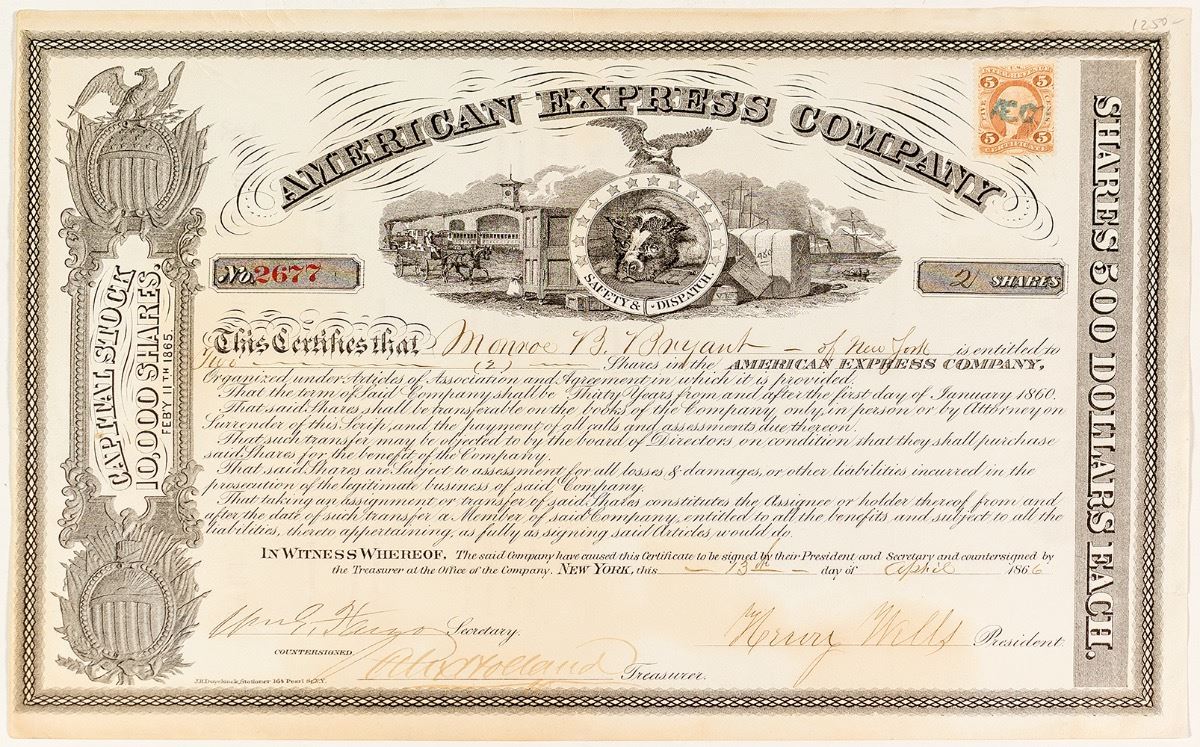 1250-
AMERICAN EXPRESS COMPANY
5 5
AEC
5 5
SAFETY & DISPATCH.
No. 2677
2 SHARES
CAPITAL STOCK
10,000 SHARES.
FEB'Y 11TH 1865.
SHARES 500 DOLLARS EACH.
This Certifies that Monroe B. Bryant - of New York is entitled to
Two (2) Shares in the AMERICAN EXPRESS COMPANY,
Organized under Articles of Association and Agreement in which it is provided.
That the term of Said Company shall be Thirty Years from and after the first day of January 1860.
That said Shares shall be transferable on the books of the Company, only in person or by Attorney on
Surrender of this Scrip, and the payment of all calls and assessments due thereon.
That such transfer may be objected to by the board of Directors on condition that they shall purchase
said Shares for the benefit of the Company.
That said Shares are Subject to assessment for all losses & damages, or other liabilities incurred in the
prosecution of the legitimate business of said Company.
That taking an assignment or transfer of said Shares constitutes the Assignee or holder thereof from and
after the date of such transfer a Member of said Company, entitled to all the benefits and subject to all the
liabilities, thereto appertaining, as fully as signing said Articles would do.
IN WITNESS WHEREOF, The said Company have caused this Certificate to be signed by their President and Secretary and countersigned by
the Treasurer at the Office of the Company. NEW YORK, this 13th day of April 1866
Wm G. Fargo Secretary. Henry Wells President
COUNTERSIGNED.
Alex Holland Treasurer.
J.H. Duyckinck, Stationer 164 Pearl St. N.Y.